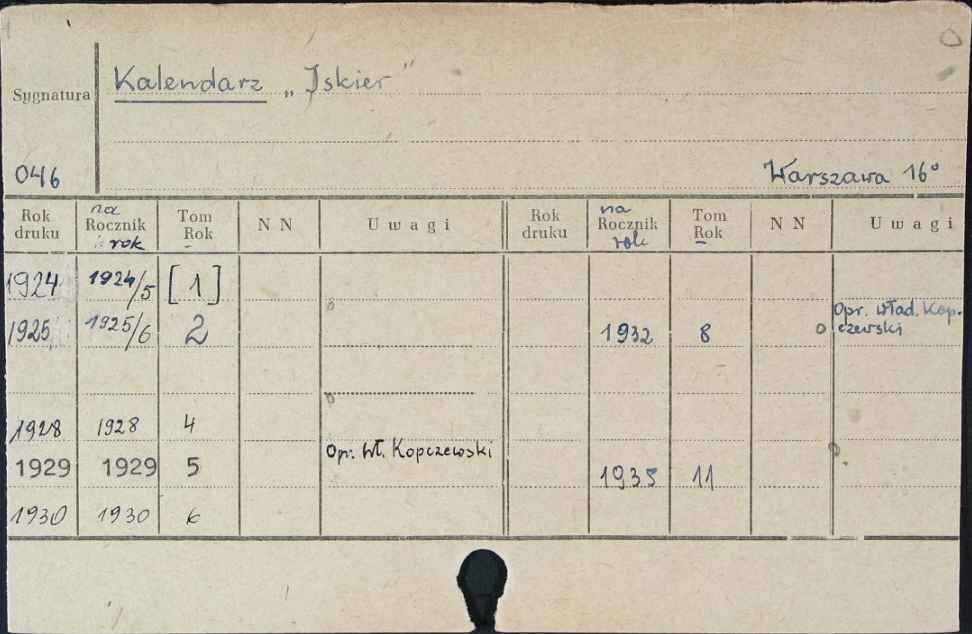 Kalendarz „Iskier"
Sygnatura
046
Warszawa 16°
Rok druku na Rocznik rok Tom Rok NN Uwagi Rok druku na Rocznik rok Tom Rok NN Uwagi
1924 1924/5 [1]
1925 1925/6 2 1932 8 Opr. Wład. Kop-
czewski
1928 1928 4
1929 1929 5 Opr. Wł. Kopczewski 1935 11
1930 1930 6